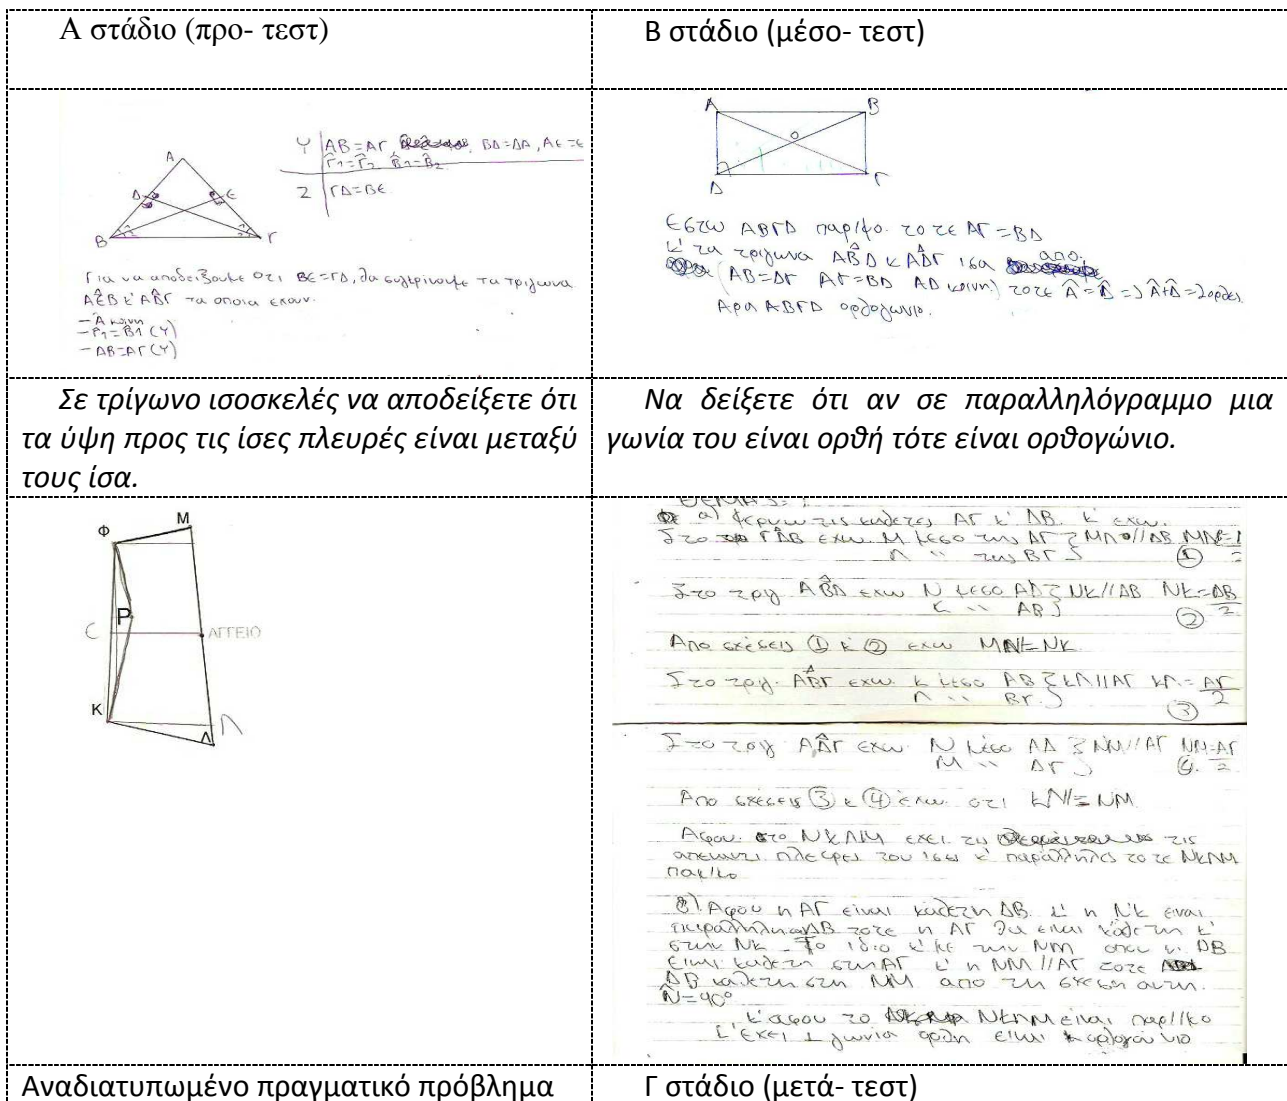 Α στάδιο (προ- τεστ)
Β στάδιο (μέσο- τεστ)
Α
Δ
Ε
Β
Γ
Υ ΑΒ=ΑΓ, ΒΔ=ΔΑ, ΑΕ=Ε
Γ̂1=Γ̂2 Β̂1=Β̂2
Ζ ΓΔ=ΒΕ
Για να αποδείξουμε οτι ΒΕ=ΓΔ, θα συγκρίνουμε τα τρίγωνα
ΑΕ̂Β κ' ΑΒ̂Γ τα οποια εχουν.
-Α κοινη
-Γ1=Β1 (Υ)
-ΑΒ=ΑΓ (Υ)
Α
Β
Ο
Δ
Γ
Εστω ΑΒΓΔ παρ/μο. τοτε ΑΓ=ΒΔ
κ' τα τριγωνα ΑΒ̂Δ κ ΑΔ̂Γ ισα απο.
(ΑΒ=ΔΓ ΑΓ=ΒΔ ΑΔ κοινη) τοτε Α̂=Δ̂ => Α̂+Δ̂=2ορθες
Αρα ΑΒΓΔ ορθογωνιο.
Σε τρίγωνο ισοσκελές να αποδείξετε ότι
τα ύψη προς τις ίσες πλευρές είναι μεταξύ
τους ίσα.
Να δείξετε ότι αν σε παραλληλόγραμμο μια
γωνία του είναι ορθή τότε είναι ορθογώνιο.
Φ
Μ
Ρ
C
ΑΓΓΕΙΟ
Κ
Λ
Λ
α) φερνω τις καθετες ΑΓ κ' ΔΒ. κ' εχω.
Στο ΓΔ̂Β εχω. Μ μεσο της ΔΓ } ΜΛ //ΔΒ
Λ " του ΒΓ
①
Στο τριγ ΑΒ̂Δ εχω Ν μεσο ΑΔ } ΝΚ//ΔΒ ΝΚ=ΔΒ/2
Κ " ΑΒ
②
Απο σχεσεις ① κ ② εχω ΜΛ//=ΝΚ
Στο τριγ. ΑΒ̂Γ εχω. Κ μεσο ΑΒ } ΚΛ//ΑΓ ΚΛ=ΑΓ/2
Λ " ΒΓ.
③
Στο τριγ ΑΔ̂Γ εχω Ν μεσο ΑΔ } ΝΜ//ΑΓ ΝΜ=ΑΓ/2
Μ " ΔΓ
④
Απο σχεσεις ③ κ ④ εχω οτι ΚΛ//=ΝΜ
Αφου στο ΝΚΛΜ εχει τις
απεναντι πλευρες του ισες κ' παραλληλες τοτε ΝΚΛΜ
παρ/μο
β) Αφου η ΑΓ ειναι καθετη ΔΒ. κ' η ΝΚ ειναι
παραλληλη ΔΒ τοτε η ΑΓ θα ειναι καθετη κ'
στην ΝΚ. Το ιδιο κ' με την ΝΜ οπου η ΔΒ
ειναι καθετη στην ΑΓ κ' η ΝΜ//ΑΓ τοτε
ΔΒ καθετη στη ΝΜ απο τη σχεση αυτη.
Ν̂=90°
κ' αφου το ΝΚΛΜ ειναι παρ/μο
κ' εχει 1 γωνια ορθη ειναι ορθογωνιο
Αναδιατυπωμένο πραγματικό πρόβλημα
Γ στάδιο (μετά- τεστ)